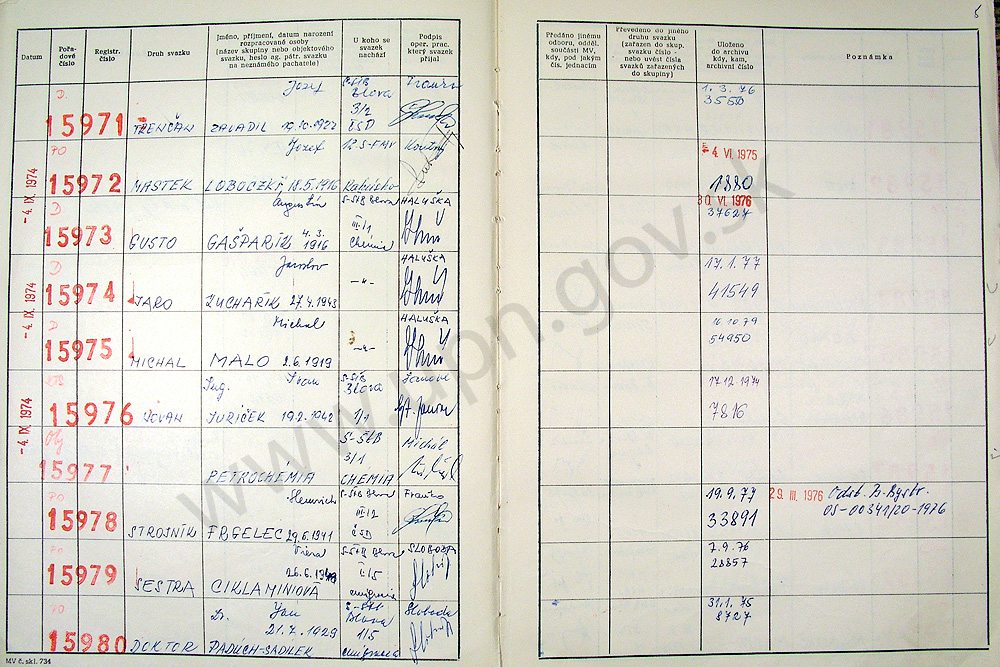 5
Datum
Pořa-
dové
číslo
Registr.
číslo
Druh svazku
Jméno, příjmení, datum narození
rozpracované osoby
(název skupiny nebo objektového
svazku, heslo ag. pátr. svazku
na neznámého pachatele)
U koho se
svazek
nachází
Podpis
oper. prac.
který svazek
přijal
Předáno jinému
odboru, odděl.
součásti MV,
kdy, pod jakým
čís. jednacím
Převedeno do jiného
druhu svazku
(zařazen do skup.
svazku číslo -
nebo uvést čísla
svazků zařazených
do skupiny)
Uloženo
do archivu
kdy, kam,
archivní číslo
Poznámka
D.
Jozef
S-ŠtB
Blava
3/2
ČSD
15971
TRENČAN
ZAVADIL
1. 3. 76
3550
PO
Jozef
12. S-FMV
15972
MASTEK
LOBOCZKÝ 18.5.1916
4. VI. 1975
1880
- 4. IX. 1974
D
Augustín
S-ŠtB Blava
HALUŠKA
15973
GUSTO
GAŠPARÍK
4. 3.
1916
III/1
Chemia
30. VI. 1976
37627
D
Jaroslav
HALUŠKA
15974
JARO
KUCHAŘÍK 27.4.1943
-"-
17. 1. 77
41549
- 4. IX. 1974
D
Michal
HALUŠKA
15975
MICHAL
MALO 2.6.1919
-"-
16.10.79
54950
Ing. Ivan
S-ŠtB
Blava
1/1
15976
JOVAN
JURÍČEK 19.2.1942
17.12.1974
7816
- 4. IX. 1974
Obj
S-ŠtB
3/1
CHEMIA
Michál
15977
PETROCHÉMIA
PO
Heinrich
S-ŠtB Blava
Franko
III/2
ČSD
15978
STROJNÍK
FRGELEC 29.6.1941
19.9.77
33891
29. III. 1976
Odst. B. Bystr.
OS-00341/20-1976
PO
Viera
S-ŠtB Blava
SLOBODA
15979
SESTRA
CIKLAMINIOVÁ
I./5
emigrácia
7.9.76
28857
PO
Dr. Ján
21.7.1929
S-ŠtB
Blava
1/5
emigrácia
Sloboda
15980
DOKTOR
PADÚCH-SADILEK
31.1.75
8727
MV č. skl. 734
www.upn.gov.sk